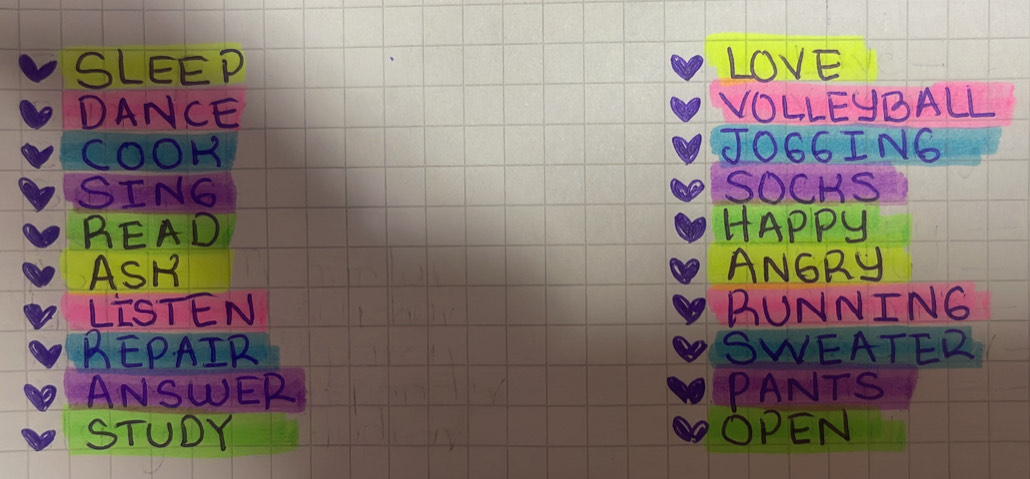 SLEEP
DANCE
COOK
SING
READ
ASK
LISTEN
REPAIR
ANSWER
STUDY
LOVE
VOLLEYBALL
JOGGING
SOCKS
HAPPY
ANGRY
RUNNING
SWEATER
PANTS
OPEN